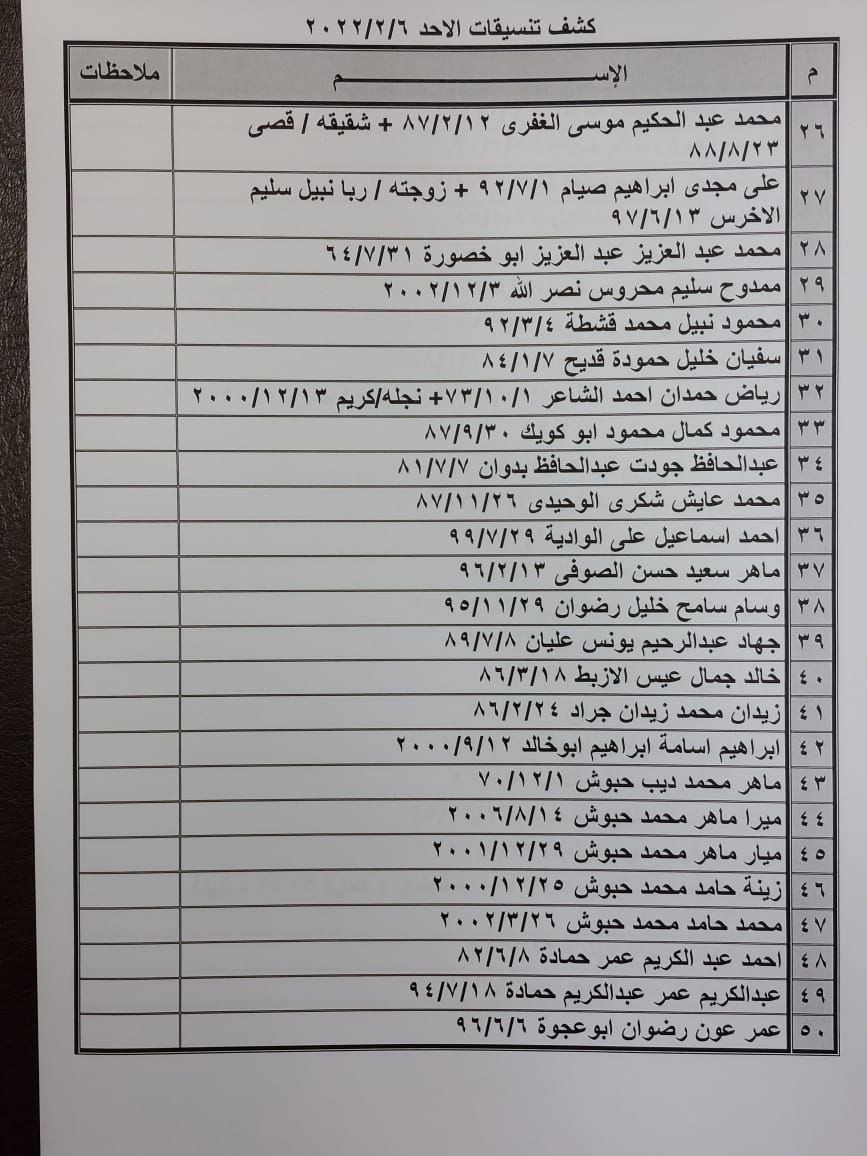 كشف تنسيقات الاحد ٢٠٢٢/٢/٦
م الإســـــــــــــــم ملاحظات
٢٦ محمد عبد الحكيم موسى الغفرى ٨٧/٢/١٢ + شقيقه / قصى
٨٨/٨/٢٣
٢٧ على مجدى ابراهيم صيام ٩٢/٧/١ + زوجته / ربا نبيل سليم
الاخرس ٩٧/٦/١٣
٢٨ محمد عبد العزيز عبد العزيز ابو خصورة ٦٤/٧/٣١
٢٩ ممدوح سليم محروس نصر الله ٢٠٠٢/١٢/٣
٣٠ محمود نبيل محمد قشطة ٩٢/٣/٤
٣١ سفيان خليل حمودة قديح ٨٤/١/٧
٣٢ رياض حمدان احمد الشاعر ٧٣/١٠/١+ نجله/كريم ٢٠٠٠/١٢/١٣
٣٣ محمود كمال محمود ابو كويك ٨٧/٩/٣٠
٣٤ عبدالحافظ جودت عبدالحافظ بدوان ٨١/٧/٧
٣٥ محمد عايش شكرى الوحيدى ٨٧/١١/٢٦
٣٦ احمد اسماعيل على الوادية ٩٩/٧/٢٩
٣٧ ماهر سعيد حسن الصوفى ٩٦/٢/١٣
٣٨ وسام سامح خليل رضوان ٩٥/١١/٢٩
٣٩ جهاد عبدالرحيم يونس عليان ٨٩/٧/٨
٤٠ خالد جمال عيس الازبط ٨٦/٣/١٨
٤١ زيدان محمد زيدان جراد ٨٦/٢/٢٤
٤٢ ابراهيم اسامة ابراهيم ابوخالد ٢٠٠٠/٩/١٢
٤٣ ماهر محمد ديب حبوش ٧٠/١٢/١
٤٤ ميرا ماهر محمد حبوش ٢٠٠٦/٨/١٤
٤٥ ميار ماهر محمد حبوش ٢٠٠١/١٢/٢٩
٤٦ زينة حامد محمد حبوش ٢٠٠٠/١٢/٢٥
٤٧ محمد حامد محمد حبوش ٢٠٠٢/٣/٢٦
٤٨ احمد عبد الكريم عمر حمادة ٨٢/٦/٨
٤٩ عبدالكريم عمر عبدالكريم حمادة ٩٤/٧/١٨
٥٠ عمر عون رضوان ابوعجوة ٩٦/٦/٦